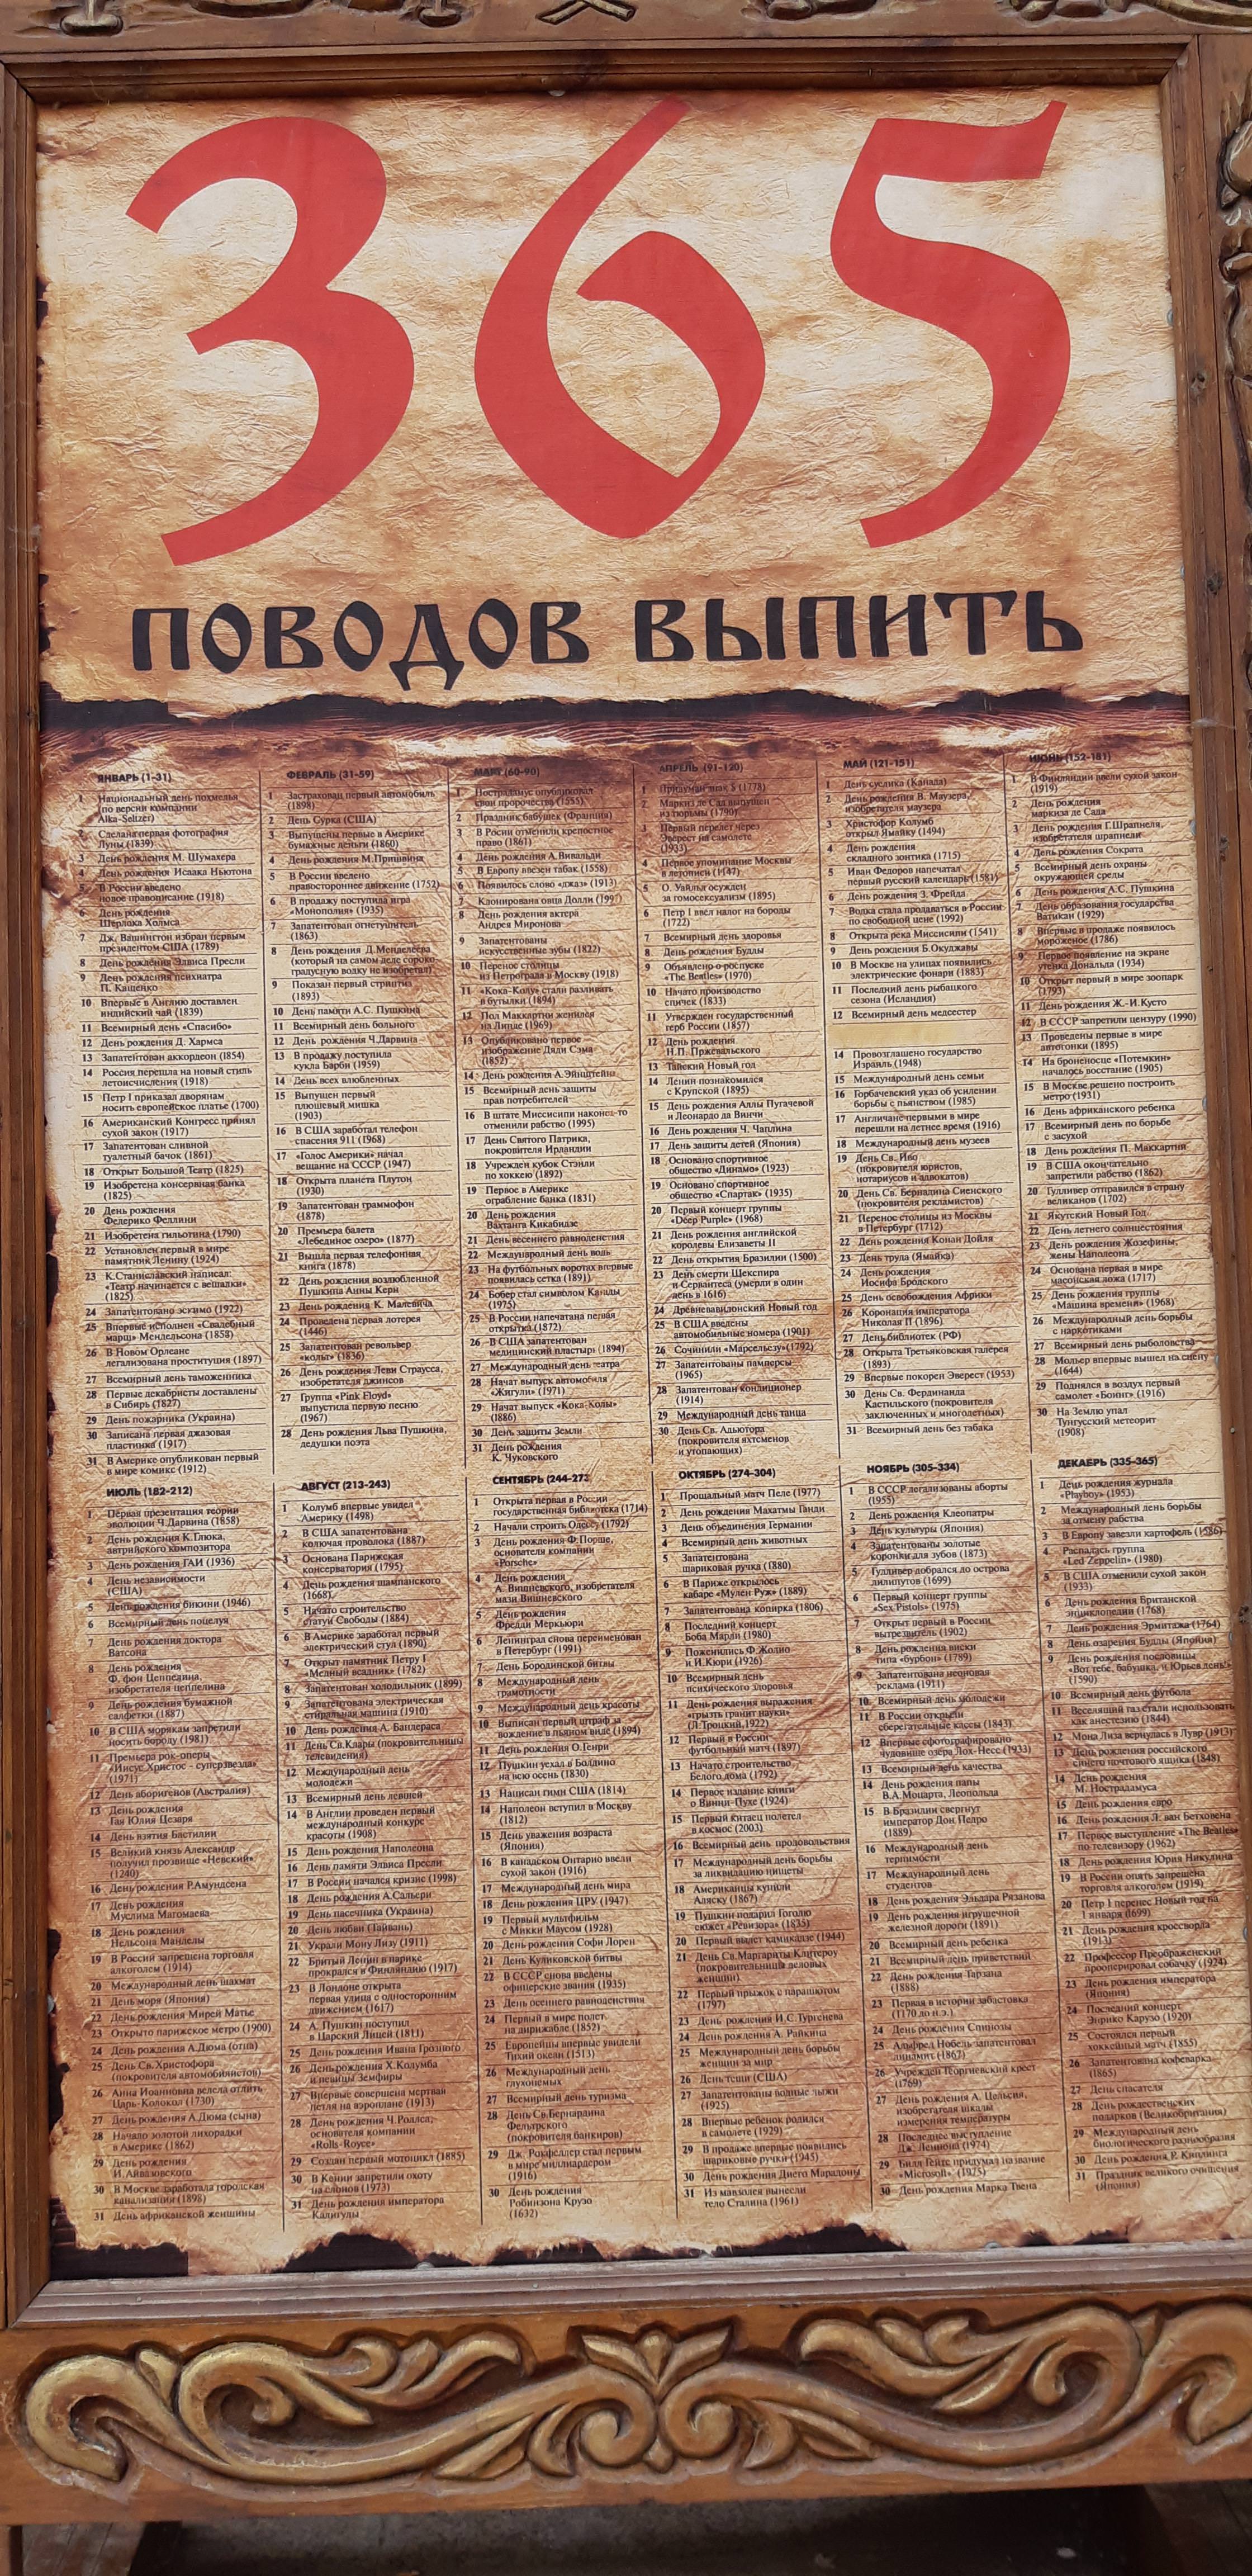 365
ПОВОДОВ ВЫПИТЬ
ЯНВАРЬ (1-31)
1 Национальный день похмелья
(по версии компании
Alka-Seltzer)
2 Сделана первая фотография
Луны (1839)
3 День рождения М. Шумахера
4 День рождения Исаака Ньютона
5 В России введено
новое правописание (1918)
6 День рождения
Шерлока Холмса
7 Дж. Вашингтон избран первым
президентом США (1789)
8 День рождения Элвиса Пресли
9 День рождения психиатра
П. Кащенко
10 Впервые в Англию доставлен
индийский чай (1839)
11 Всемирный день «Спасибо»
12 День рождения Д. Хармса
13 Запатентован аккордеон (1854)
14 Россия перешла на новый стиль
летоисчисления (1918)
15 Петр I приказал дворянам
носить европейское платье (1700)
16 Американский Конгресс принял
сухой закон (1917)
17 Запатентован сливной
туалетный бачок (1861)
18 Открыт Большой Театр (1825)
19 Изобретена консервная банка
(1825)
20 День рождения
Федерико Феллини
21 Изобретена гильотина (1790)
22 Установлен первый в мире
памятник Ленину (1924)
23 К.Станиславский написал:
«Театр начинается с вешалки»
(1825)
24 Запатентовано эскимо (1922)
25 Впервые исполнен «Свадебный
марш» Мендельсона (1858)
26 В Новом Орлеане
легализована проституция (1897)
27 Всемирный день таможенника
28 Первые декабристы доставлены
в Сибирь (1827)
29 День пожарника (Украина)
30 Записана первая джазовая
пластинка (1917)
31 В Америке опубликован первый
в мире комикс (1912)
ФЕВРАЛЬ (31-59)
1 Застрахован первый автомобиль
(1898)
2 День Сурка (США)
3 Выпущены первые в Америке
бумажные деньги (1860)
4 День рождения М.Пришвина
5 В России введено
правостороннее движение (1752)
6 В продажу поступила игра
«Монополия» (1935)
7 Запатентован огнетушитель
(1863)
8 День рождения Д.Менделеева
(который на самом деле сороко-
градусную водку не изобретал)
9 Показан первый стриптиз
(1893)
10 День памяти А.С. Пушкина
11 Всемирный день больного
12 День рождения Ч.Дарвина
13 В продажу поступила
кукла Барби (1959)
14 День всех влюбленных
15 Выпущен первый
плюшевый мишка
(1903)
16 В США заработал телефон
спасения 911 (1968)
17 «Голос Америки» начал
вещание на СССР (1947)
18 Открыта планета Плутон
(1930)
19 Запатентован граммофон
(1878)
20 Премьера балета
«Лебединое озеро» (1877)
21 Вышла первая телефонная
книга (1878)
22 День рождения возлюбленной
Пушкина Анны Керн
23 День рождения К. Малевича
24 Проведена первая лотерея
(1446)
25 Запатентован револьвер
«кольт» (1836)
26 День рождения Леви Страусса,
изобретателя джинсов
27 Группа «Pink Floyd»
выпустила первую песню
(1967)
28 День рождения Льва Пушкина,
дедушки поэта
МАРТ (60-90)
1 Нострадамус опубликовал
свои пророчества (1555)
2 Праздник бабушек (Франция)
3 В Росии отменили крепостное
право (1861)
4 День рождения А.Вивальди
5 В Европу ввезен табак (1558)
6 Появилось слово «джаз» (1913)
7 Клонирована овца Долли (1997)
8 День рождения актера
Андрея Миронова
9 Запатентованы
искусственные зубы (1822)
10 Перенос столицы
из Петрограда в Москву (1918)
11 «Кока-Колу» стали разливать
в бутылки (1894)
12 Пол Маккартни женился
на Линде (1969)
13 Опубликовано первое
изображение Дяди Сэма
(1852)
14 День рождения А.Эйнштейна
15 Всемирный день защиты
прав потребителей
16 В штате Миссисипи наконец-то
отменили рабство (1995)
17 День Святого Патрика,
покровителя Ирландии
18 Учрежден кубок Стэнли
по хоккею (1892)
19 Первое в Америке
ограбление банка (1831)
20 День рождения
Вахтанга Кикабидзе
21 День весеннего равноденствия
22 Международный день воды
23 На футбольных воротах впервые
появилась сетка (1891)
24 Бобер стал символом Канады
(1975)
25 В России напечатана первая
открытка (1872)
26 В США запатентован
медицинский пластырь (1894)
27 Международный день театра
28 Начат выпуск автомобиля
«Жигули» (1971)
29 Начат выпуск «Кока-Колы»
(1886)
30 День защиты Земли
31 День рождения
К. Чуковского
АПРЕЛЬ (91-120)
1 Придуман знак $ (1778)
2 Маркиз де Сад выпущен
из тюрьмы (1790)
3 Первый перелет через
Эверест на самолете
(1933)
4 Первое упоминание Москвы
в летописи (1147)
5 О. Уайльд осужден
за гомосексуализм (1895)
6 Петр I ввел налог на бороды
(1722)
7 Всемирный день здоровья
8 День рождения Будды
9 Объявлено о роспуске
«The Beatles» (1970)
10 Начато производство
спичек (1833)
11 Утвержден государственный
герб России (1857)
12 День рождения
Н.П. Пржевальского
13 Тайский Новый год
14 Ленин познакомился
с Крупской (1895)
15 День рождения Аллы Пугачевой
и Леонардо да Винчи
16 День рождения Ч. Чаплина
17 День защиты детей (Япония)
18 Основано спортивное
общество «Динамо» (1923)
19 Основано спортивное
общество «Спартак» (1935)
20 Первый концерт группы
«Deep Purple» (1968)
21 День рождения английской
королевы Елизаветы II
22 День открытия Бразилии (1500)
23 День смерти Шекспира
и Сервантеса (умерли в один
день в 1616)
24 Древневавилонский Новый год
25 В США введены
автомобильные номера (1901)
26 Сочинили «Марсельезу» (1792)
27 Запатентованы памперсы
(1965)
28 Запатентован кондиционер
(1914)
29 Международный день танца
30 День Св. Адьютора
(покровителя яхтсменов
и утопающих)
МАЙ (121-151)
1 День суслика (Канада)
2 День рождения В. Маузера,
изобретателя маузера
3 Христофор Колумб
открыл Ямайку (1494)
4 День рождения
складного зонтика (1715)
5 Иван Федоров напечатал
первый русский календарь (1581)
6 День рождения З. Фрейда
7 Водка стала продаваться в России
по свободной цене (1992)
8 Открыта река Миссисипи (1541)
9 День рождения Б.Окуджавы
10 В Москве на улицах появились
электрические фонари (1883)
11 Последний день рыбацкого
сезона (Исландия)
12 Всемирный день медсестер
14 Провозглашено государство
Израиль (1948)
15 Международный день семьи
16 Горбачевский указ об усилении
борьбы с пьянством (1985)
17 Англичане первыми в мире
перешли на летнее время (1916)
18 Международный день музеев
19 День Св. Иво
(покровителя юристов,
нотариусов и адвокатов)
20 День Св. Бернадина Сиенского
(покровителя рекламистов)
21 Перенос столицы из Москвы
в Петербург (1712)
22 День рождения Конан Дойля
23 День труда (Ямайка)
24 День рождения
Иосифа Бродского
25 День освобождения Африки
26 Коронация императора
Николая II (1896)
27 День библиотек (РФ)
28 Открыта Третьяковская галерея
(1893)
29 Впервые покорен Эверест (1953)
30 День Св. Фердинанда
Кастильского (покровителя
заключенных и многодетных)
31 Всемирный день без табака
ИЮНЬ (152-181)
1 В Финляндии ввели сухой закон
(1919)
2 День рождения
маркиза де Сада
3 День рождения Г.Шрапнеля,
изобретателя шрапнели
4 День рождения Сократа
5 Всемирный день охраны
окружающей среды
6 День рождения А.С. Пушкина
7 День образования государства
Ватикан (1929)
8 Впервые в продаже появилось
мороженое (1786)
9 Первое появление на экране
утенка Дональда (1934)
10 Открыт первый в мире зоопарк
(1793)
11 День рождения Ж.-И.Кусто
12 В СССР запретили цензуру (1990)
13 Проведены первые в мире
автогонки (1895)
14 На броненосце «Потемкин»
началось восстание (1905)
15 В Москве решено построить
метро (1931)
16 День африканского ребенка
17 Всемирный день по борьбе
с засухой
18 День рождения П. Маккартни
19 В США окончательно
запретили рабство (1862)
20 Гулливер отправился в страну
великанов (1702)
21 Якутский Новый Год
22 День летнего солнцестояния
23 День рождения Жозефины,
жены Наполеона
24 Основана первая в мире
масонская ложа (1717)
25 День рождения группы
«Машина времени» (1968)
26 Международный день борьбы
с наркотиками
27 Всемирный день рыболовства
28 Мольер впервые вышел на сцену
(1644)
29 Поднялся в воздух первый
самолет «Боинг» (1916)
30 На Землю упал
Тунгусский метеорит
(1908)
ИЮЛЬ (182-212)
1 Первая презентация теории
эволюции Ч.Дарвина (1858)
2 День рождения К.Глюка,
австрийского композитора
3 День рождения ГАИ (1936)
4 День независимости
(США)
5 День рождения бикини (1946)
6 Всемирный день поцелуя
7 День рождения доктора
Ватсона
8 День рождения
Ф. фон Цеппелина,
изобретателя цеппелина
9 День рождения бумажной
салфетки (1887)
10 В США морякам запретили
носить бороду (1981)
11 Премьера рок-оперы
«Иисус Христос - суперзвезда»
(1971)
12 День аборигенов (Австралия)
13 День рождения
Гая Юлия Цезаря
14 День взятия Бастилии
15 Великий князь Александр
получил прозвище «Невский»
(1240)
16 День рождения Р.Амундсена
17 День рождения
Муслима Магомаева
18 День рождения
Нельсона Манделы
19 В России запрещена торговля
алкоголем (1914)
20 Международный день шахмат
21 День моря (Япония)
22 День рождения Мирей Матье
23 Открыто парижское метро (1900)
24 День рождения А.Дюма (отца)
25 День Св.Христофора
(покровителя автомобилистов)
26 Анна Иоанновна велела отлить
Царь-Колокол (1730)
27 День рождения А.Дюма (сына)
28 Начало золотой лихорадки
в Америке (1862)
29 День рождения
И.Айвазовского
30 В Москве заработала городская
канализация (1898)
31 День африканской женщины
АВГУСТ (213-243)
1 Колумб впервые увидел
Америку (1498)
2 В США запатентована
колючая проволока (1887)
3 Основана Парижская
консерватория (1795)
4 День рождения шампанского
(1668)
5 Начато строительство
статуи Свободы (1884)
6 В Америке заработал первый
электрический стул (1890)
7 Открыт памятник Петру I
«Медный всадник» (1782)
8 Запатентован холодильник (1899)
9 Запатентована электрическая
стиральная машина (1910)
10 День рождения А. Бандераса
11 День Св.Клары (покровительницы
телевидения)
12 Международный день
молодежи
13 Всемирный день левшей
14 В Англии проведен первый
международный конкурс
красоты (1908)
15 День рождения Наполеона
16 День памяти Элвиса Пресли
17 В России начался кризис (1998)
18 День рождения А.Сальери
19 День пасечника (Украина)
20 День любви (Тайвань)
21 Украли Мону Лизу (1911)
22 Бритый Ленин в парике
прокрался в Финляндию (1917)
23 В Лондоне открыта
первая улица с односторонним
движением (1617)
24 А. Пушкин поступил
в Царский Лицей (1811)
25 День рождения Ивана Грозного
26 День рождения Х.Колумба
и певицы Земфиры
27 Впервые совершена мертвая
петля на аэроплане (1913)
28 День рождения Ч.Роллса,
основателя компании
«Rolls-Royce»
29 Создан первый мотоцикл (1885)
30 В Кении запретили охоту
на слонов (1973)
31 День рождения императора
Калигулы
СЕНТЯБРЬ (244-273
1 Открыта первая в России
государственная библиотека (1714)
2 Начали строить Одессу (1792)
3 День рождения Ф.Порше,
основателя компании
«Porsche»
4 День рождения
А. Вишневского, изобретателя
мази Вишневского
5 День рождения
Фредди Меркьюри
6 Ленинград снова переименован
в Петербург (1991)
7 День Бородинской битвы
8 Международный день
грамотности
9 Международный день красоты
10 Выписан первый штраф за
вождение в пьяном виде (1894)
11 День рождения О.Генри
12 Пушкин уехал в Болдино
на всю осень (1830)
13 Написан гимн США (1814)
14 Наполеон вступил в Москву
(1812)
15 День уважения возраста
(Япония)
16 В канадском Онтарио ввели
сухой закон (1916)
17 Международный день мира
18 День рождения ЦРУ (1947)
19 Первый мультфильм
с Микки Маусом (1928)
20 День рождения Софи Лорен
21 День Куликовской битвы
22 В СССР снова введены
офицерские звания (1935)
23 День осеннего равноденствия
24 Первый в мире полет
на дирижабле (1852)
25 Европейцы впервые увидели
Тихий океан (1513)
26 Международный день
глухонемых
27 Всемирный день туризма
28 День Св.Бернардина
Фельтрского
(покровителя банкиров)
29 Дж. Рокфеллер стал первым
в мире миллиардером
(1916)
30 День рождения
Робинзона Крузо
(1632)
ОКТЯБРЬ (274-304)
1 Прощальный матч Пеле (1977)
2 День рождения Махатмы Ганди
3 День объединения Германии
4 Всемирный день животных
5 Запатентована
шариковая ручка (1880)
6 В Париже открылось
кабаре «Мулен Руж» (1889)
7 Запатентована копирка (1806)
8 Последний концерт
Боба Марли (1980)
9 Поженились Ф.Жолио
и И.Кюри (1926)
10 Всемирный день
психического здоровья
11 День рождения выражения
«грызть гранит науки»
(Л.Троцкий,1922)
12 Первый в России
футбольный матч (1897)
13 Начато строительство
Белого дома (1792)
14 Первое издание книги
о Винни-Пухе (1924)
15 Первый китаец полетел
в космос (2003)
16 Всемирный день продовольствия
17 Международный день борьбы
за ликвидацию нищеты
18 Американцы купили
Аляску (1867)
19 Пушкин подарил Гоголю
сюжет «Ревизора» (1835)
20 Первый вылет камикадзе (1944)
21 День Св.Маргариты Клитероу
(покровительницы деловых
женщин)
22 Первый прыжок с парашютом
(1797)
23 День рождения И.С.Тургенева
24 День рождения А. Райкина
25 Международный день борьбы
женщин за мир
26 День тещи (США)
27 Запатентованы водные лыжи
(1925)
28 Впервые ребенок родился
в самолете (1929)
29 В продаже впервые появились
шариковые ручки (1945)
30 День рождения Диего Марадоны
31 Из мавзолея вынесли
тело Сталина (1961)
НОЯБРЬ (305-334)
1 В СССР легализованы аборты
(1955)
2 День рождения Клеопатры
3 День культуры (Япония)
4 Запатентованы золотые
коронки для зубов (1873)
5 Гулливер добрался до острова
лилипутов (1699)
6 Первый концерт группы
«Sex Pistols» (1975)
7 Открыт первый в России
вытрезвитель (1902)
8 День рождения виски
типа «бурбон» (1789)
9 Запатентована неоновая
реклама (1911)
10 Всемирный день молодежи
11 В России открыли
сберегательные кассы (1843)
12 Впервые сфотографировано
чудовище озера Лох-Несс (1933)
13 Всемирный день качества
14 День рождения папы
В.А.Моцарта, Леопольда
15 В Бразилии свергнут
император Дон Педро
(1889)
16 Международный день
терпимости
17 Международный день
студентов
18 День рождения Эльдара Рязанова
19 День рождения игрушечной
железной дороги (1891)
20 Всемирный день ребенка
21 Всемирный день приветствий
22 День рождения Тарзана
(1888)
23 Первая в истории забастовка
(1170 до н.э.)
24 День рождения Спинозы
25 Альфред Нобель запатентовал
динамит (1867)
26 Учрежден Георгиевский крест
(1769)
27 День рождения А. Цельсия,
изобретателя шкалы
измерения температуры
28 Последнее выступление
Дж. Леннона (1974)
29 Билл Гейтс придумал название
«Microsoft» (1975)
30 День рождения Марка Твена
ДЕКАБРЬ (335-365)
1 День рождения журнала
«Playboy» (1953)
2 Международный день борьбы
за отмену рабства
3 В Европу завезли картофель (1586)
4 Распалась группа
«Led Zeppelin» (1980)
5 В США отменили сухой закон
(1933)
6 День рождения Британской
энциклопедии (1768)
7 День рождения Эрмитажа (1764)
8 День озарения Будды (Япония)
9 День рождения пословицы
«Вот тебе, бабушка, и Юрьев день!»
(1590)
10 Всемирный день футбола
11 Веселящий газ стали использовать
как анестезию (1844)
12 Мона Лиза вернулась в Лувр (1913)
13 День рождения российского
синего почтового ящика (1848)
14 День рождения
М. Нострадамуса
15 День рождения евро
16 День рождения Л. ван Бетховена
17 Первое выступление «The Beatles»
по телевизору (1962)
18 День рождения Юрия Никулина
19 В России опять запрещена
торговля алкоголем (1919)
20 Петр I перенес Новый год на
1 января (1699)
21 День рождения кроссворда
(1913)
22 Профессор Преображенский
прооперировал собачку (1924)
23 День рождения императора
(Япония)
24 Последний концерт
Энрико Карузо (1920)
25 Состоялся первый
хоккейный матч (1855)
26 Запатентована кофеварка
(1865)
27 День спасателя
28 День рождественских
подарков (Великобритания)
29 Международный день
биологического разнообразия
30 День рождения Р. Киплинга
31 Праздник великого очищения
(Япония)